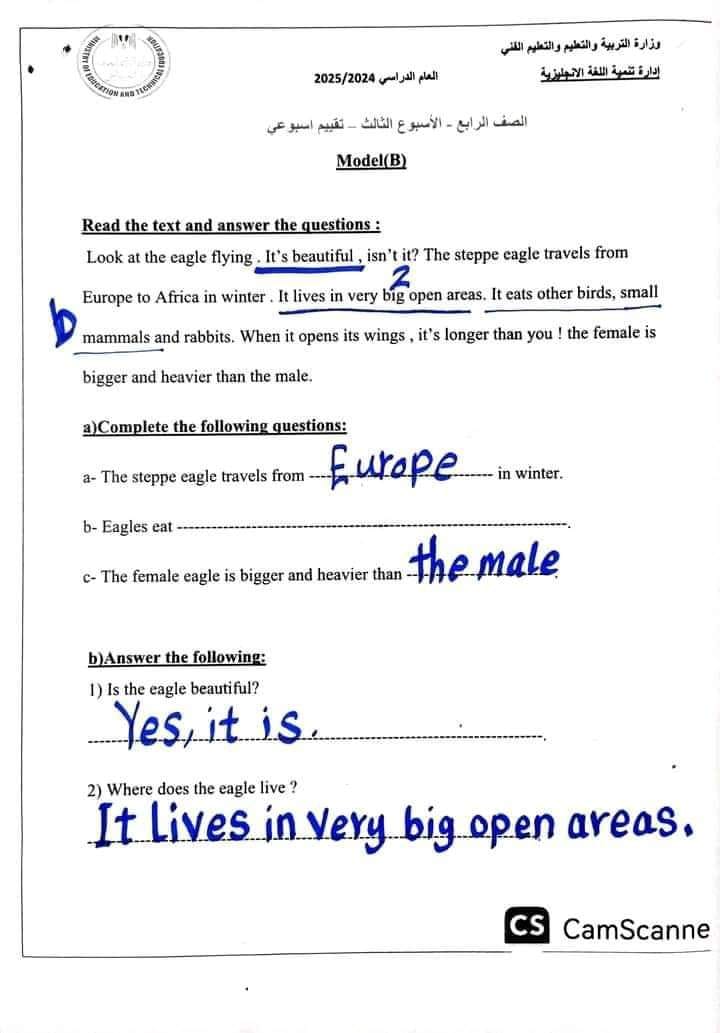 وزارة التربية والتعليم والتعليم الفني
العام الدراسي 2025/2024
إدارة تنمية اللغة الانجليزية
MINISTRY OF EDUCATION AND TECHNICAL EDUCATION
الصف الرابع - الأسبوع الثالث – تقييم اسبوعي
Model(B)
Read the text and answer the questions :
Look at the eagle flying . It's beautiful , isn't it? The steppe eagle travels from
2
Europe to Africa in winter . It lives in very big open areas. It eats other birds, small
b
mammals and rabbits. When it opens its wings , it's longer than you ! the female is
bigger and heavier than the male.
a)Complete the following questions:
a- The steppe eagle travels from ---- Europe ---- in winter.
b- Eagles eat ----------------------------------------.
c- The female eagle is bigger and heavier than -- the male.
b)Answer the following:
1) Is the eagle beautiful?
Yes, it is.
2) Where does the eagle live ?
It lives in very big open areas.
CS CamScanne